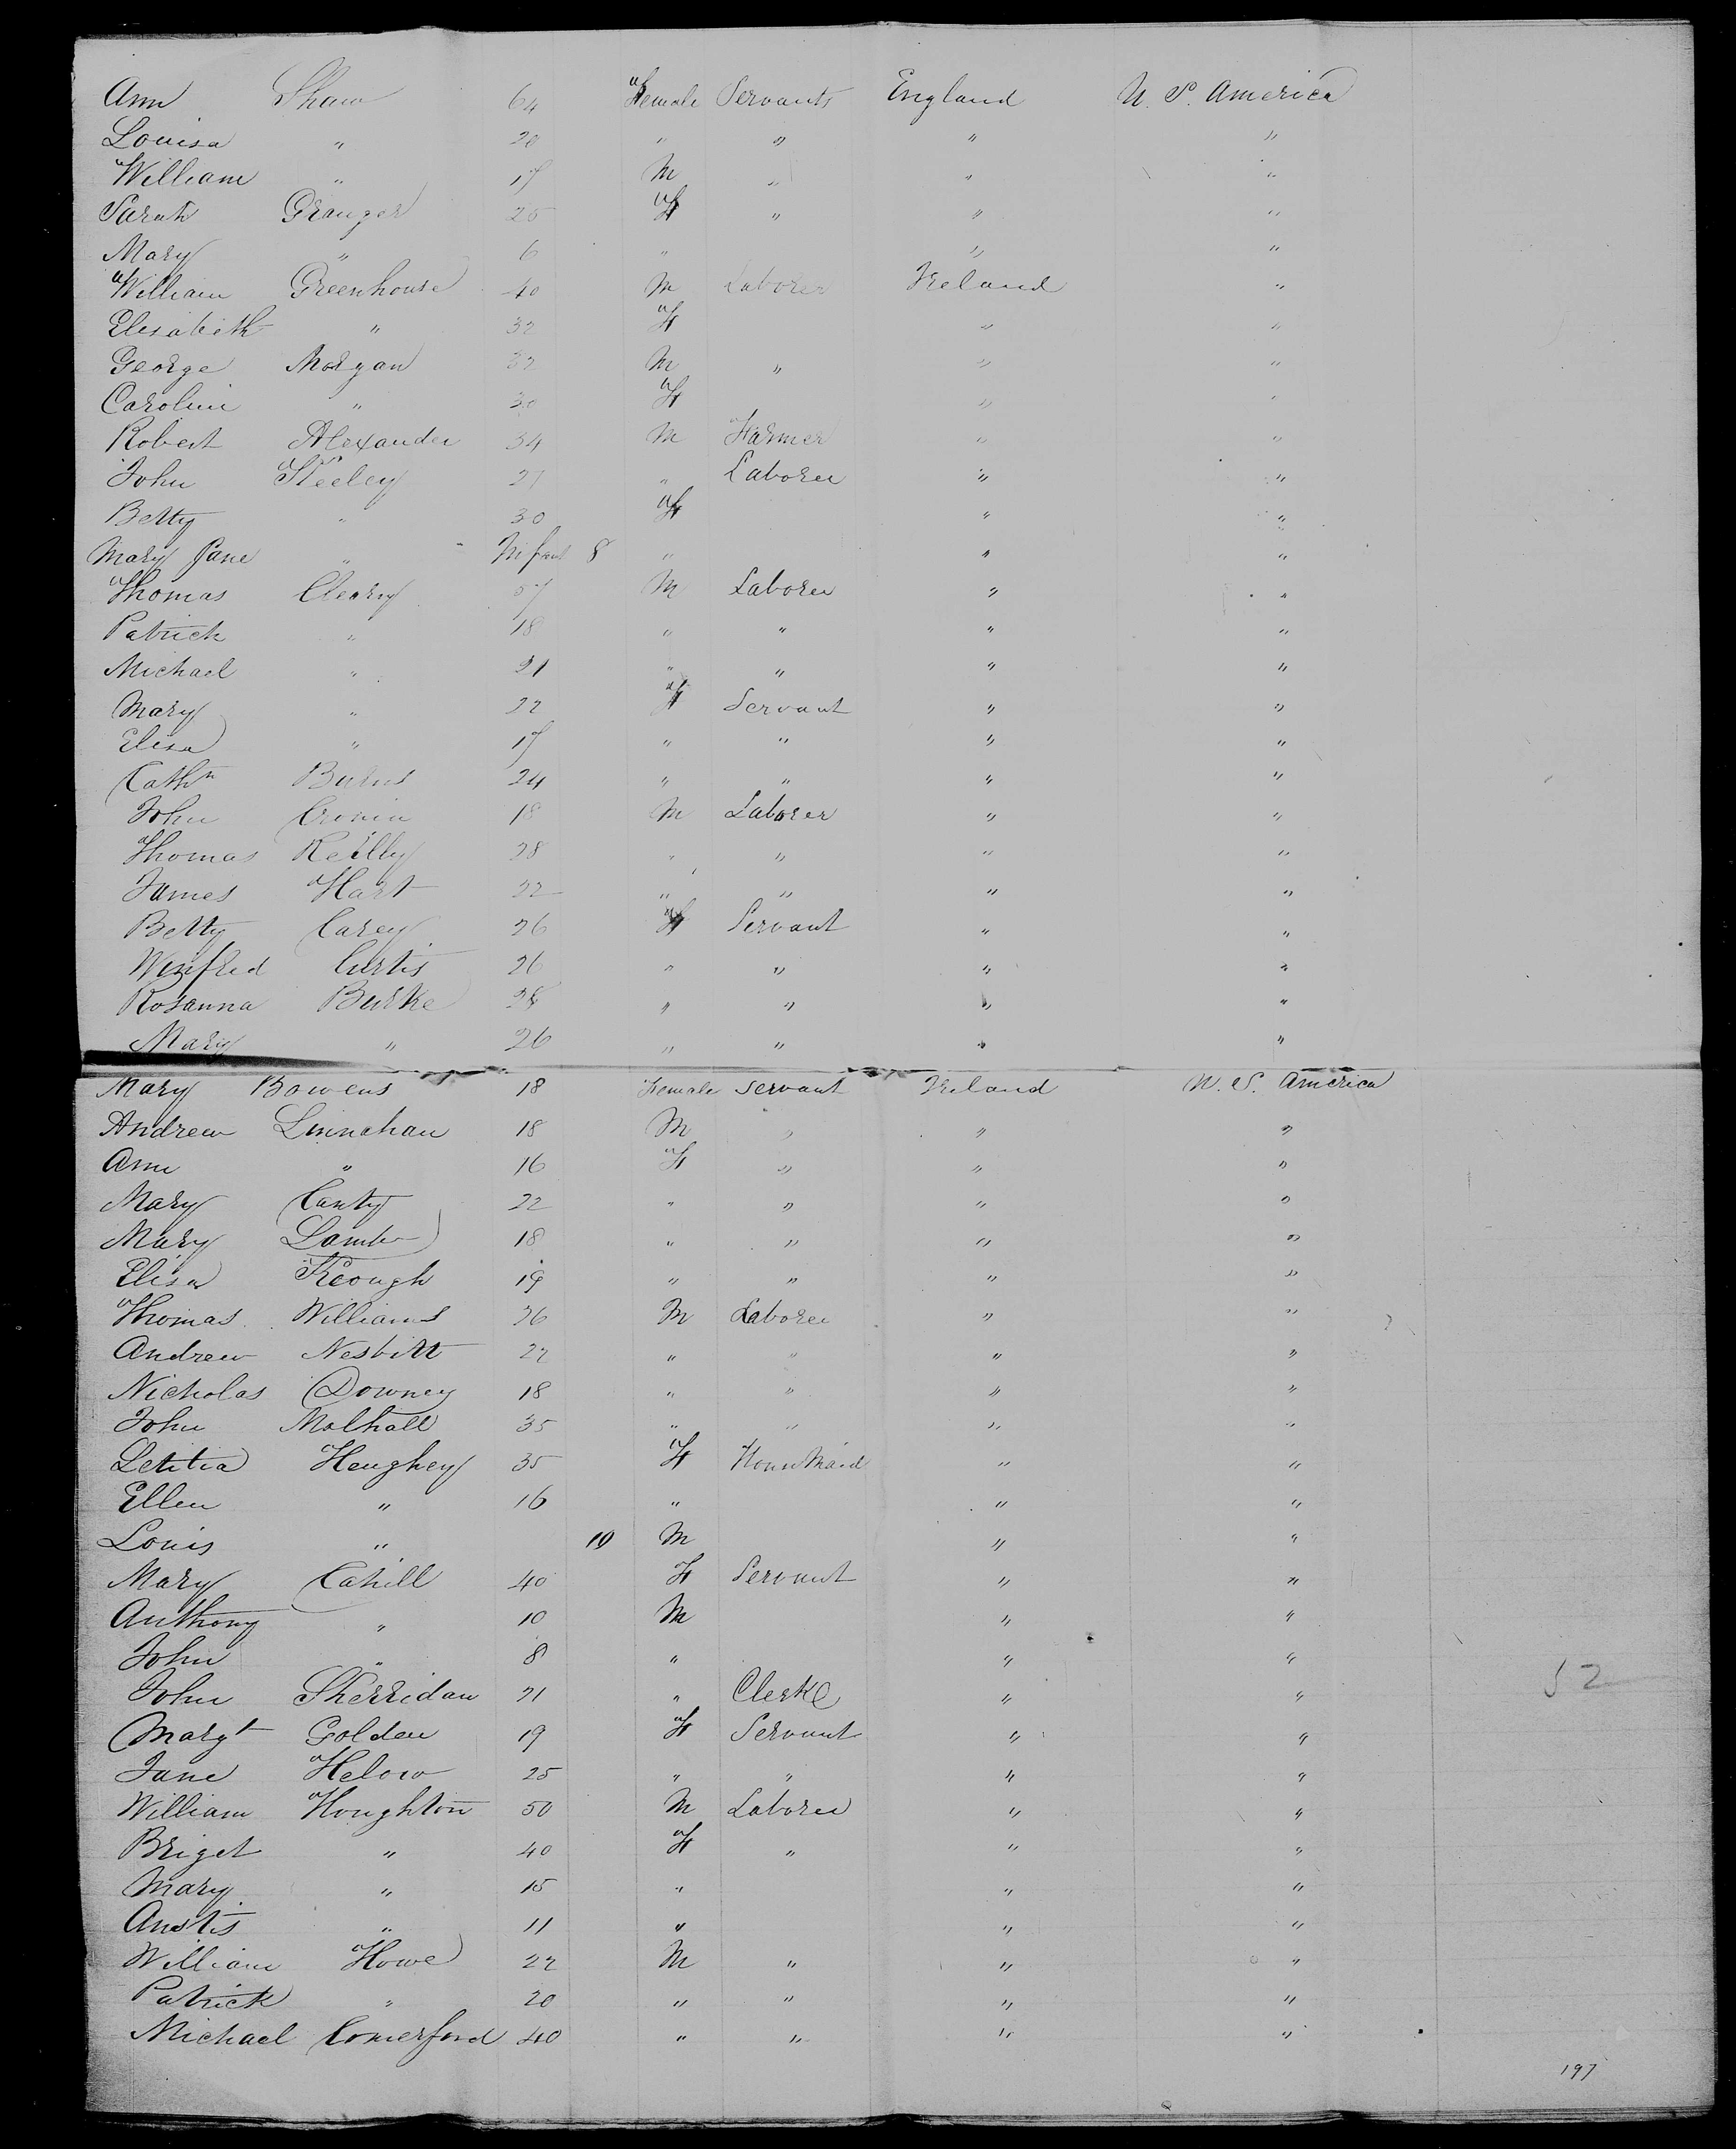 Ann Shaw 64 Female Servants England U. S. America
Louisa " 20 " " " "
William " 17 M " " "
Sarah Granger 25 F " " "
Mary " 6 " " "
William Greenhouse 40 M Laborer Ireland "
Elisabeth " 32 F " "
George Morgan 32 M " " "
Carolin " 30 F " "
Robert Alexander 34 M Farmer " "
John Keeley 27 " Laborer " "
Betty " 30 F " "
Mary Jane " Infant 8 " " "
Thomas Cleary 57 M Laborer " "
Patrick " 18 " " " "
Michael " 21 " " " "
Mary " 22 F Servant " "
Elisa " 17 " " " "
Cathn Burns 24 " " " "
John Cronin 18 M Laborer " "
Thomas Reilly 28 " " " "
James Hart 22 " " " "
Betty Carey 26 F Servant " "
Winifred Curtis 26 " " " "
Rosanna Burke 28 " " " "
Mary " 26 " " " "
Mary Bowens 18 Female Servant Ireland U. S. America
Andrew Linnahan 18 M " " "
Ann " 16 F " " "
Mary Canty 22 " " " "
Mary Lamb 18 " " " "
Elisa Keough 19 " " " "
Thomas Williams 26 M Laborer " "
Andrew Nesbitt 22 " " " "
Nicholas Downey 18 " " " "
John Molhall 35 " " " "
Letitia Heughey 35 F House Maid " "
Ellen " 16 " " "
Louis " 10 M " "
Mary Cahill 40 F Servant " "
Anthony " 10 M " "
John " 8 " " "
John Sherridan 21 " Clerk " " 52
Margt Golden 19 F Servant " "
Jane Helow 25 " " " "
William Houghton 50 M Laborer " "
Briget " 40 F " " "
Mary " 15 " " "
Anstis " 11 " " "
William Howe 22 M " " "
Patrick " 20 " " " "
Michael Comerford 40 " " " "
197